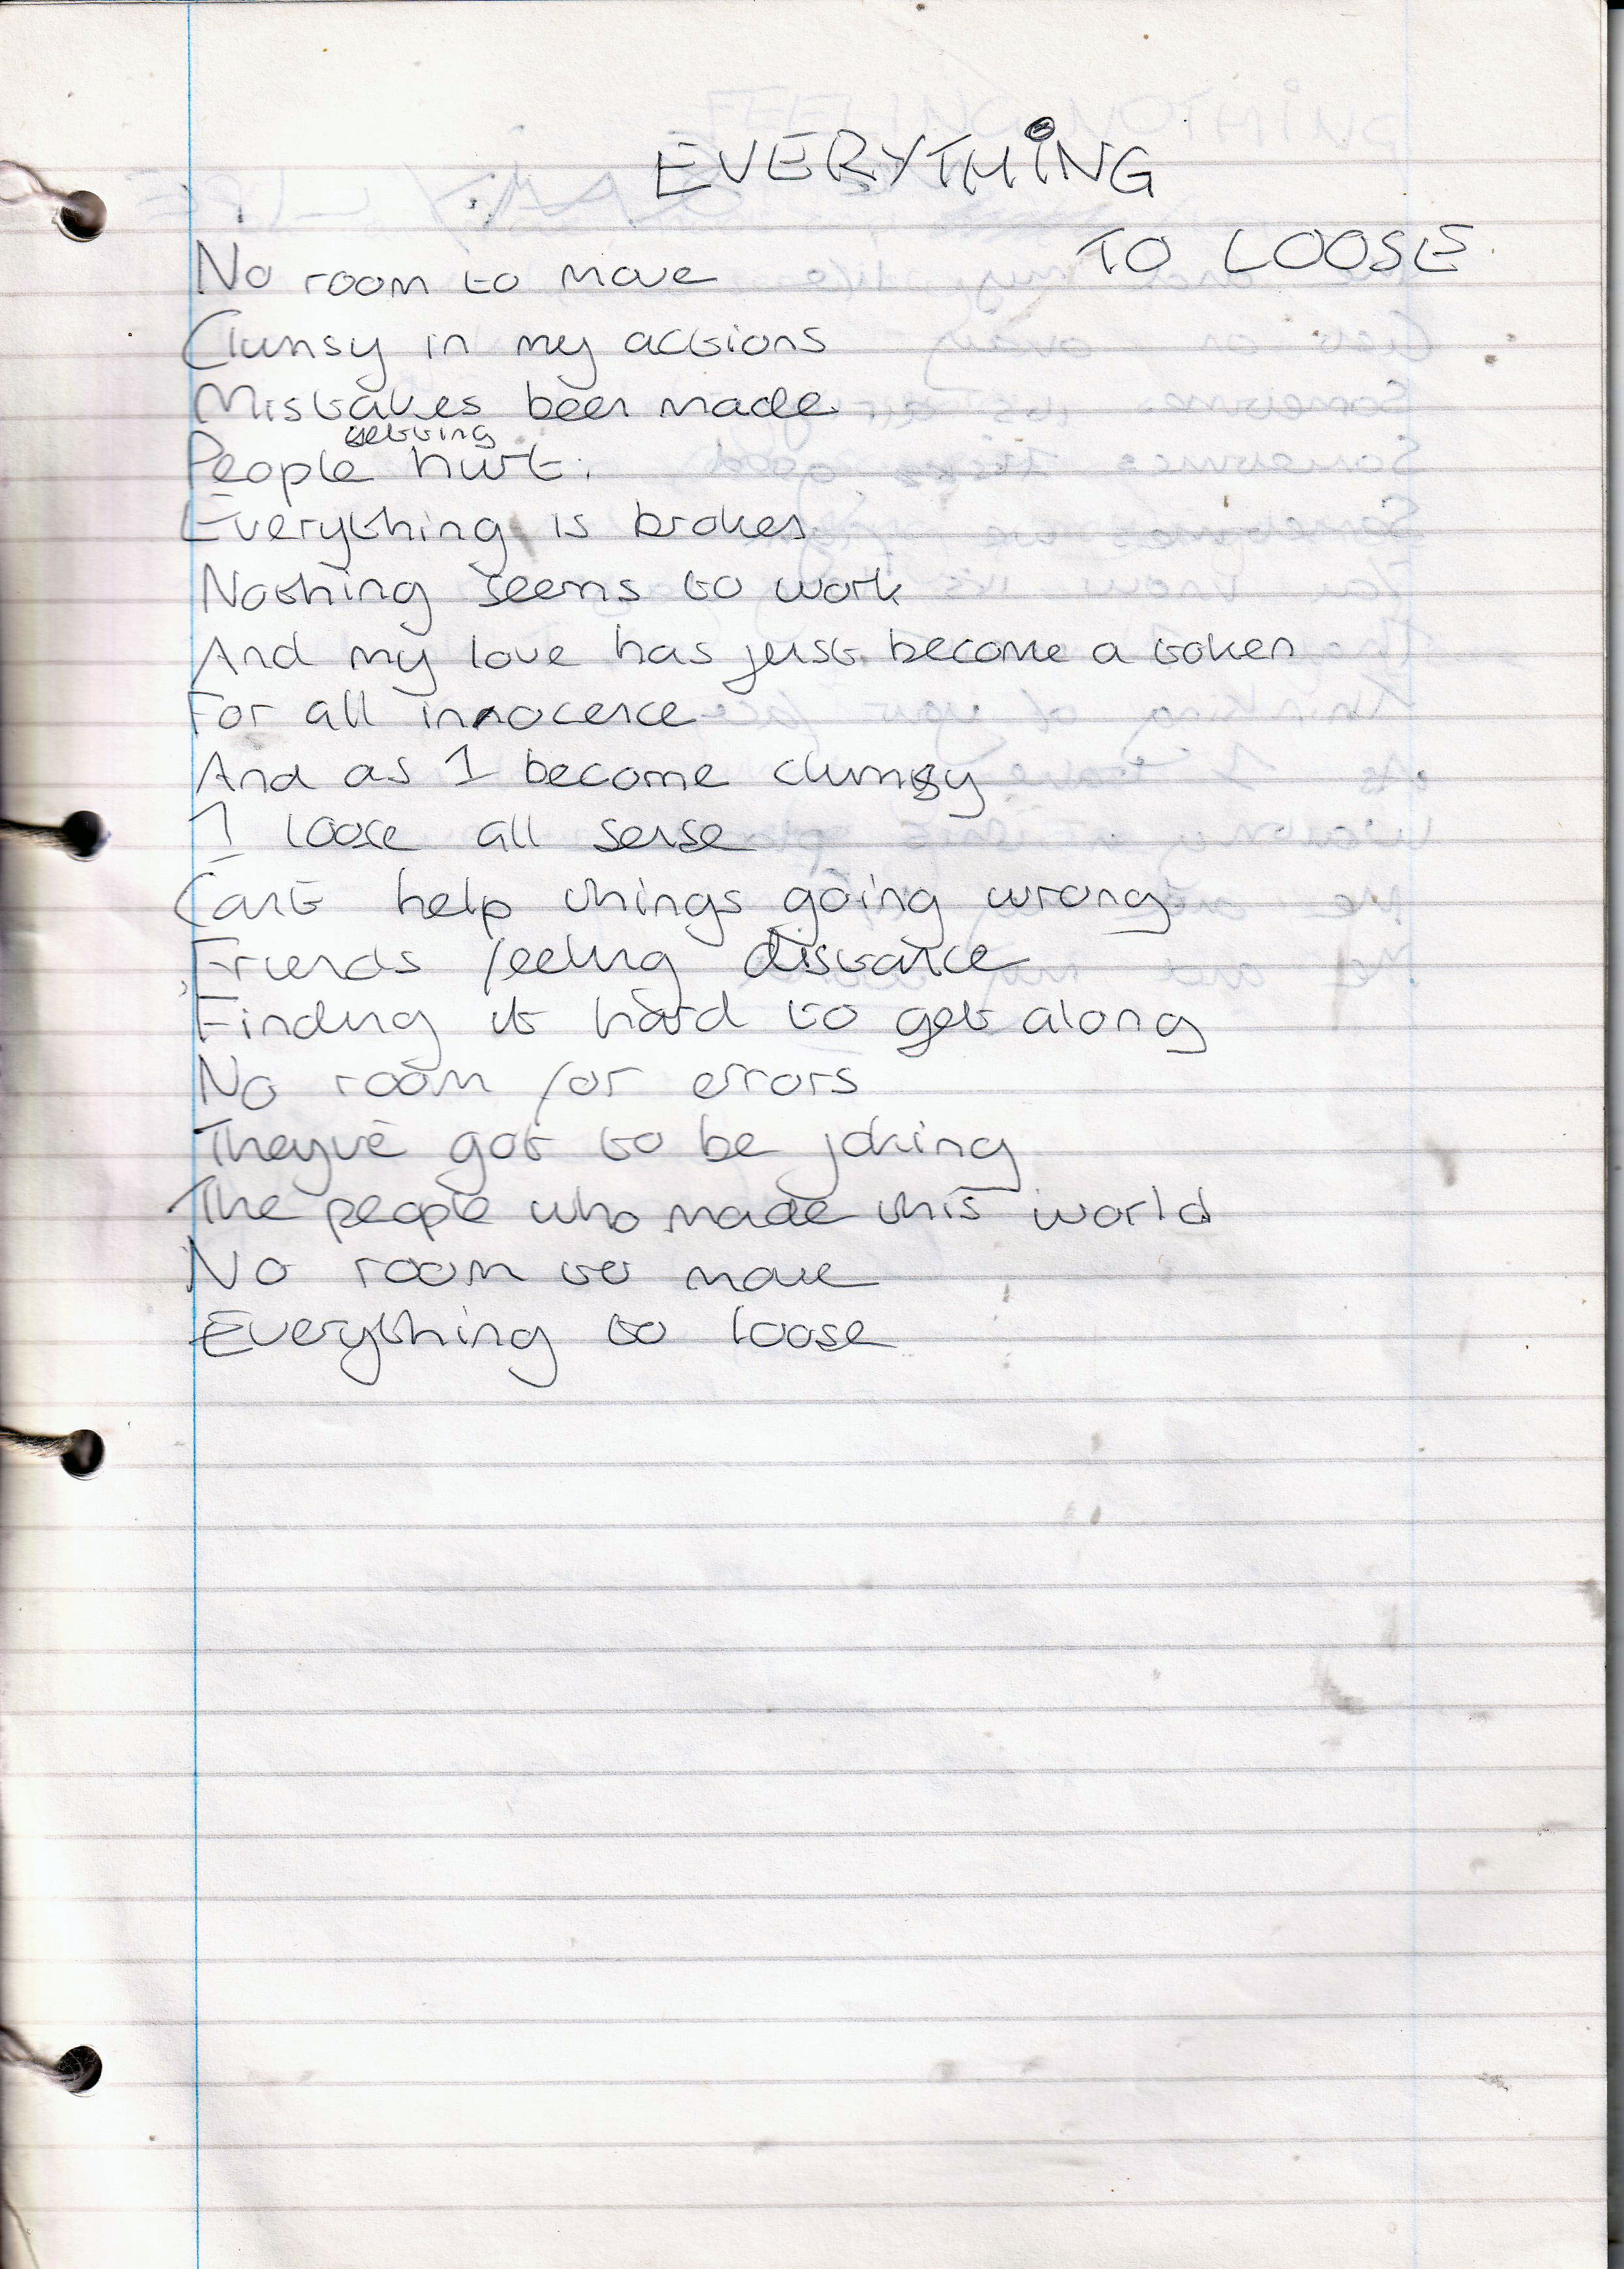 EVERYTHING
TO LOOSE
No room to move
Clumsy in my actions
Mistakes been made
getting
People hurt.
Everything is broken
Nothing seems to work
And my love has just become a token
For all innocence
And as I become clumsy
I loose all sense
Cant help things going wrong
Friends feeling distance
Finding it hard to get along
No room for errors
They've got to be joking
The people who made this world
No room to move
Everything to loose